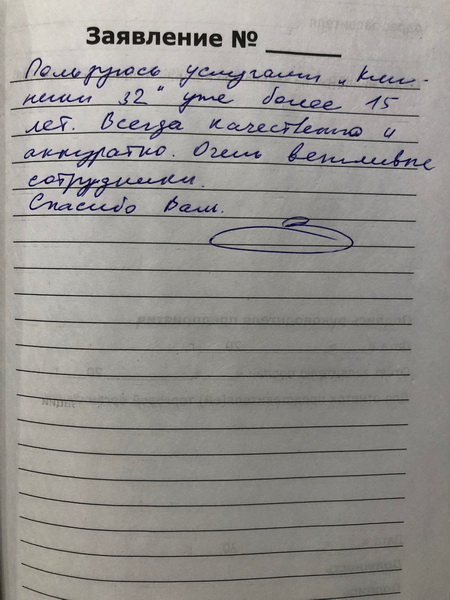 Заявление № ______
Пользуюсь услугами „Кли-
ники 32" уже более 15
лет. Всегда качественно и
аккуратно. Очень вежливые
сотрудники.
Спасибо Вам.